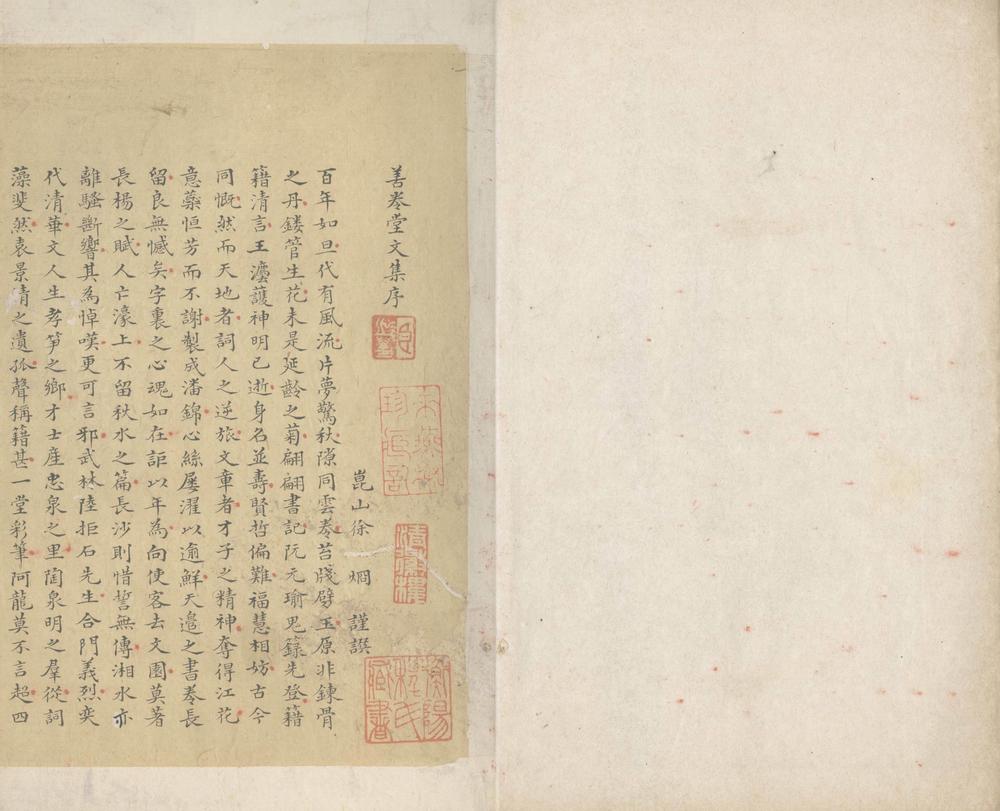 善卷堂文集序
崑山徐 烱 謹譔
百年如旦代有風流片夢驚秋隙同雲卷苔牋劈玉原非鍊骨
之丹鏤管生花未是延齡之菊翩翩書記阮元瑜鬼籙先登籍
籍清言王濛護神明已逝身名並壽賢哲偏難福慧相妨古今
同慨然而天地者詞人之逆旅文章者才子之精神奪得江花
意蘂恒芳而不謝製成潘錦心絲屢濯以逾鮮天邉之書卷長
留良無憾矣字裏之心魂如在詎以年為向使客去文園莫著
長楊之賦人亡濠上不留秋水之篇長沙則惜誓無傳湘水亦
離騷斷響其為悼嘆更可言邪武林陸拒石先生合門義烈奕
代清華文人生孝笋之鄉才士産惠泉之里陶泉明之羣從詞
藻斐然袁景倩之遺孤聲稱籍甚一堂彩筆阿龍莫不言超四